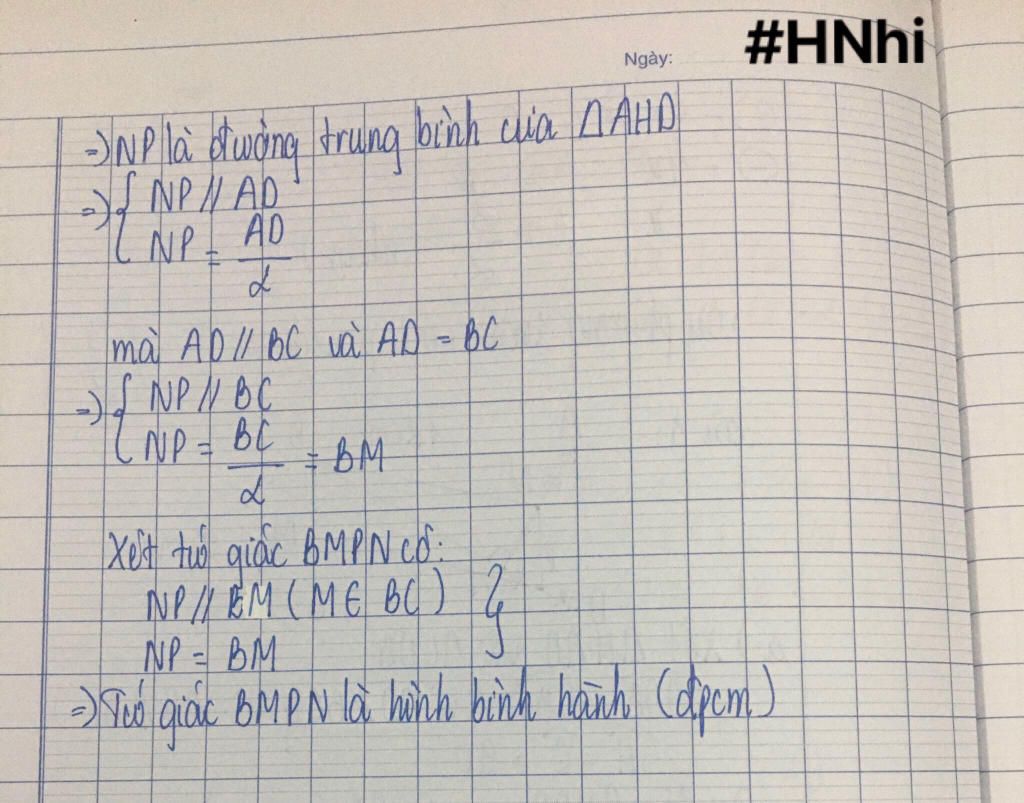 #HNhi
Ngày:
=> NP là đường trung bình của ΔAHD
=> { NP // AD
NP = AD/2
mà AD // BC và AD = BC
=> { NP // BC
NP = BC/2 = BM
Xét tứ giác BMPN có:
NP // BM (M ∈ BC) }
NP = BM
=> Tứ giác BMPN là hình bình hành (đpcm)